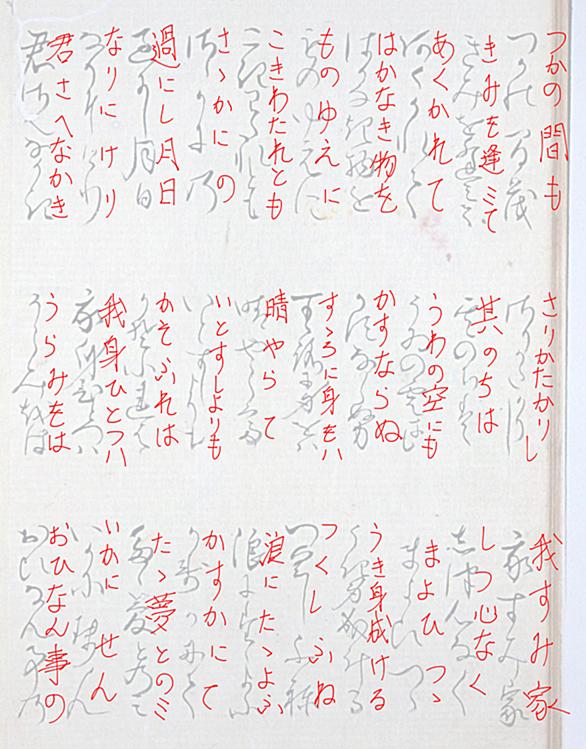 つかの間も
さりかたかりし
我すみ家
きみを逢ミて
其のちは
しつ心なく
あくかれて
うわの空にも
まよひつゝ
はかなき物を
かすならぬ
うき身成ける
ものゆえに
すゝろに身をハ
つくしふね
こきわたれとも
晴やらて
浪にたゝよふ
さゝかにの
いとすしよりも
かすかにて
過にし月日
かそふれは
たゝ夢とのミ
なりにけり
我身ひとつハ
いかにせん
君さへなかき
うらみをは
おひなん事の